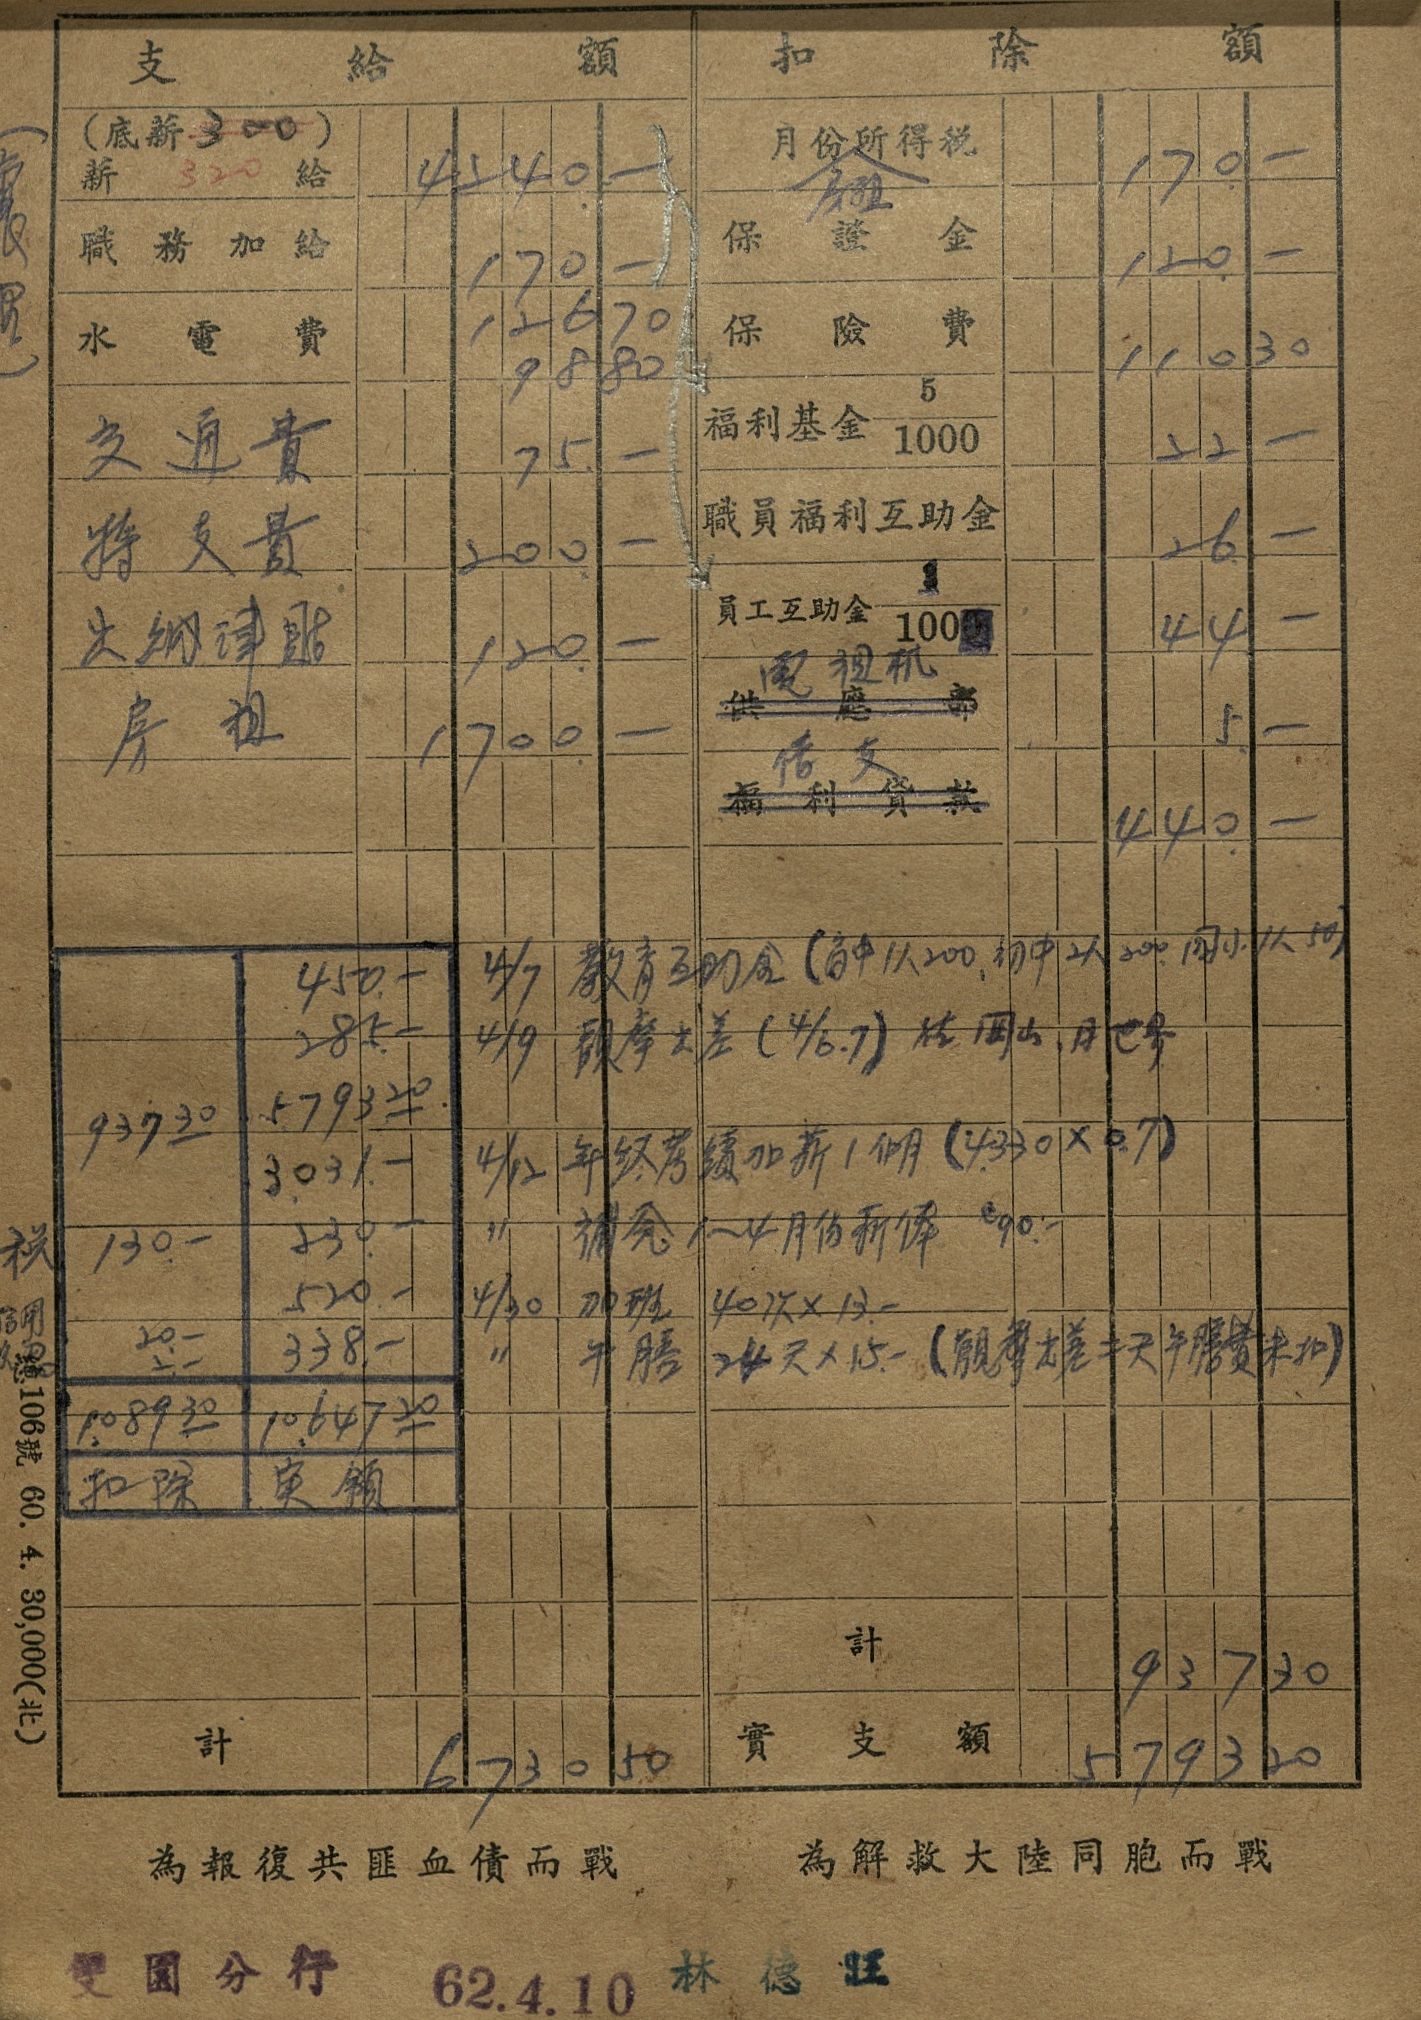 支給額
扣除額
(底薪300)
薪 320 給 4240.—
職務加給 170.—
水電費 126 70
98 80
交通費 75.—
特支費 200.—
出納津貼 120.—
房租 1700.—
月份所得稅 170.—
保證金 120.—
保險費 110 30
福利基金 5/1000 22.—
職員福利互助金 26.—
員工互助金 1/100 44.—
供應部 5.—
借支
福利貸款 440.—
450.— 4/7 教育互助金(高中1人200、初中2人200 國小1人50)
285.— 4/9 觀摩出差(4/6.7) 往岡山、月世界
937 30 5793 20
3.031.— 4/12 年終考績加薪1個月(4330×0.7)
130.— 230.— 〃 補發1~4月份薪俸 @90.—
520.— 4/30 加班 40次×13.—
20.—
2.— 338.— 〃 午膳 24天×15.— (觀摩出差二天午膳費未扣)
1.089 30 10.647 20
扣除 実領
稅
信用
總106號 60. 4. 30,000(北)
計 937 30
計 6730 50
實支額 5793 20
為報復共匪血債而戰
為解救大陸同胞而戰
雙園分行 62.4.10 林德旺